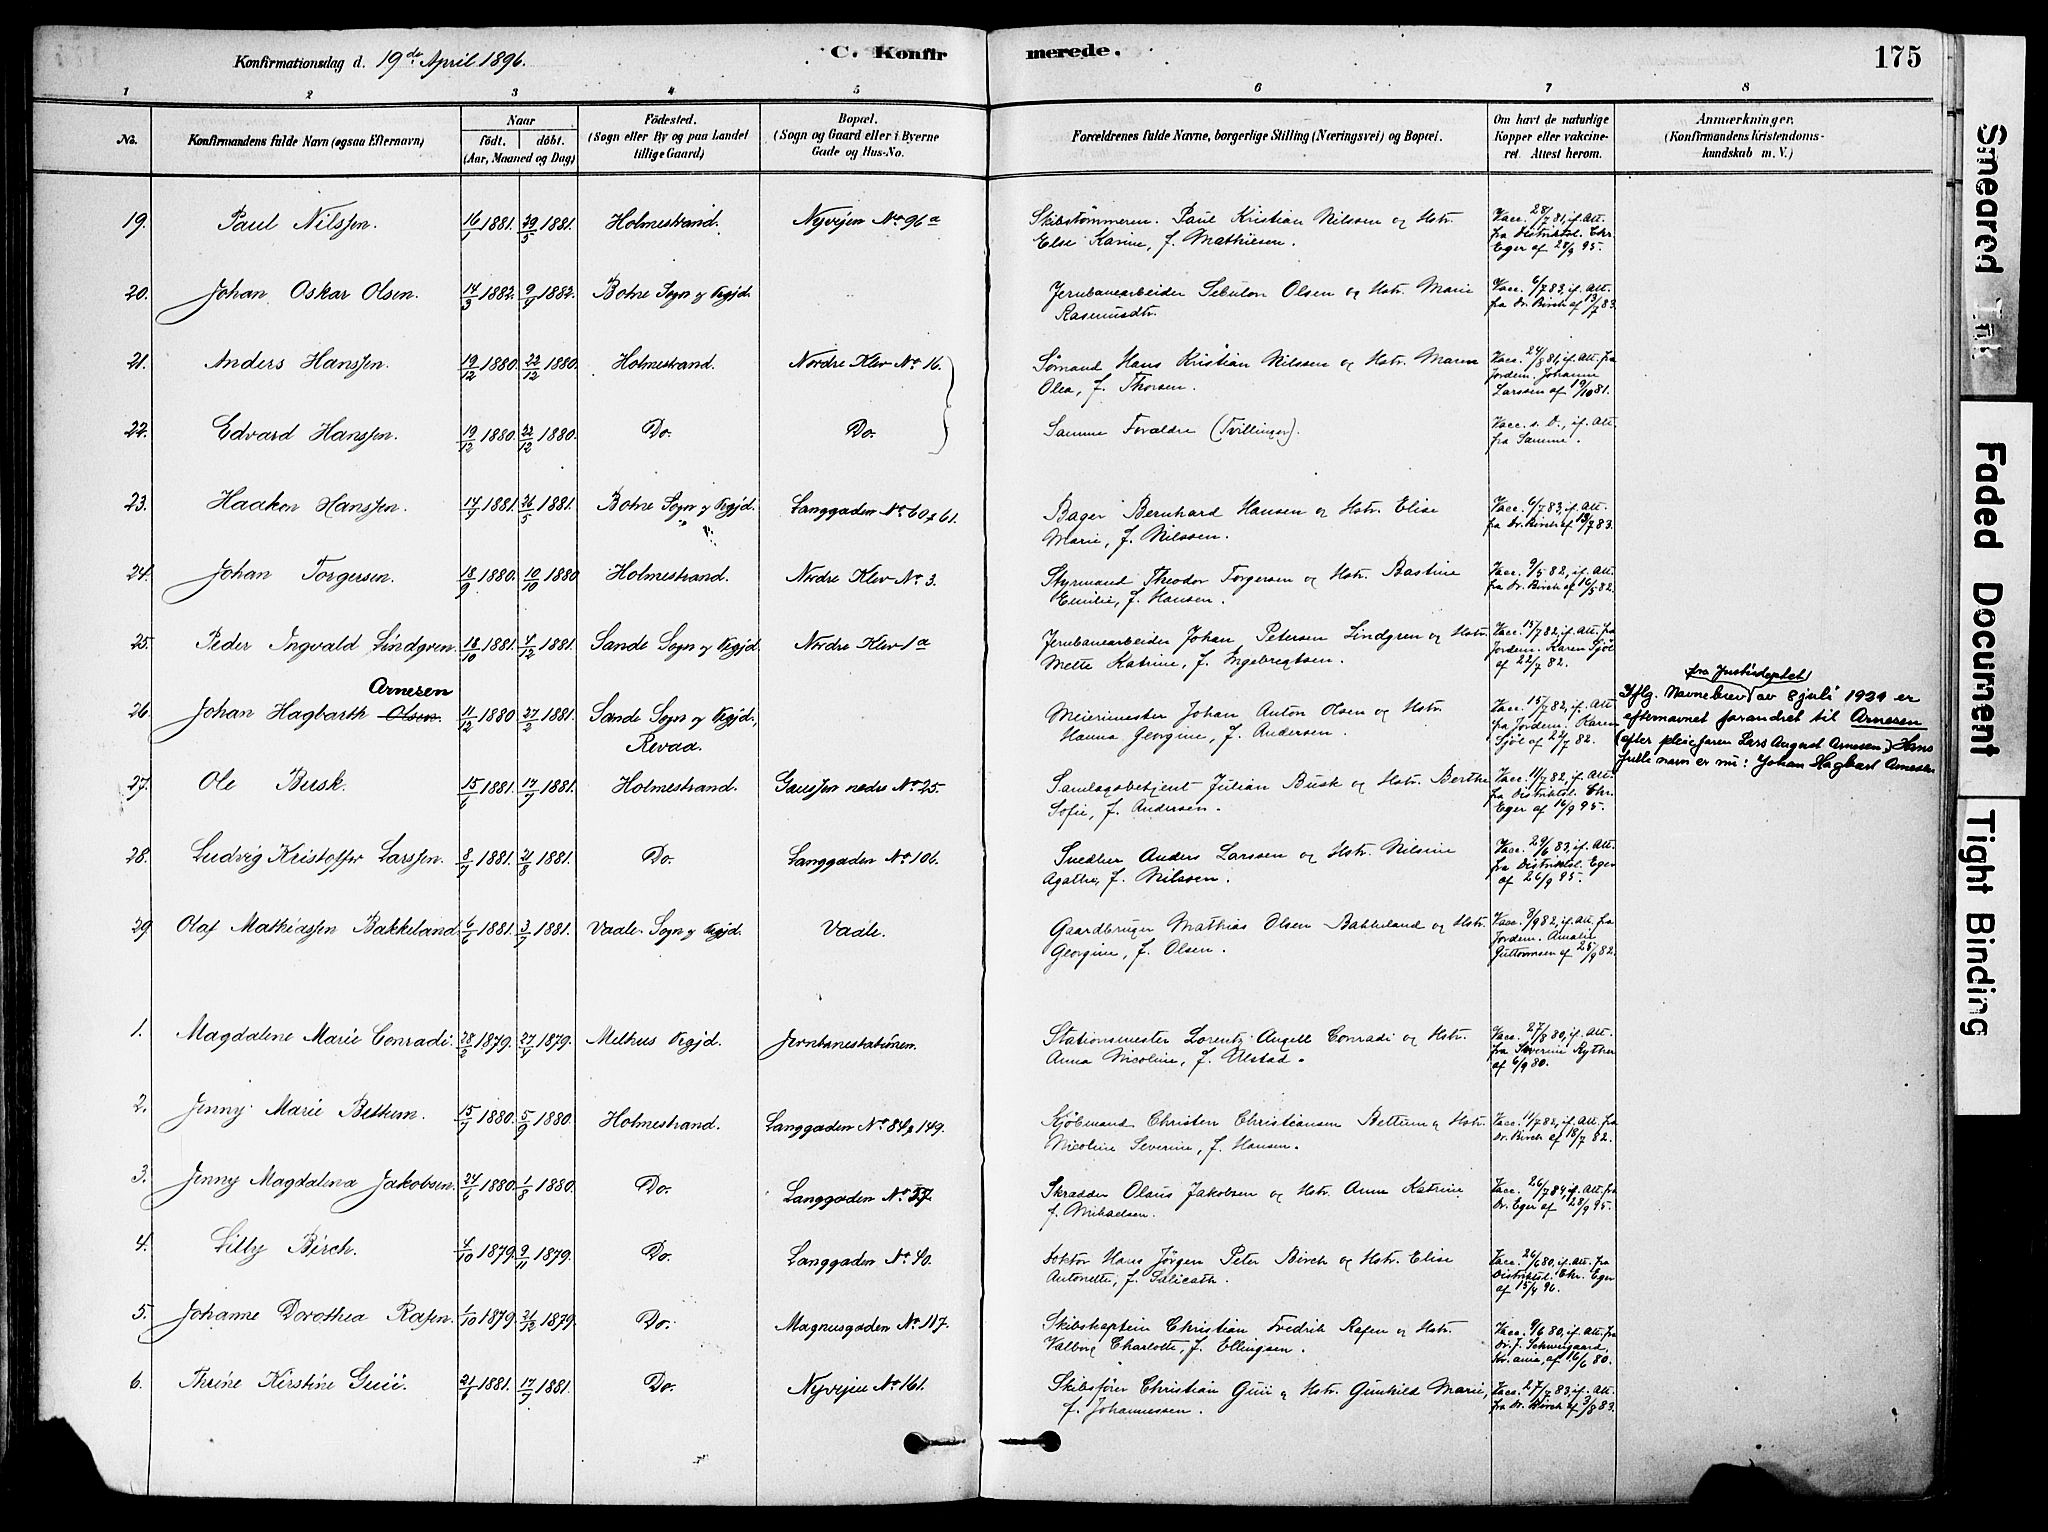 Konfirmationsdag d. 19de April 1896. C. Konfirmerede. 175
1 2 3 4 5 6 7 8
No. Konfirmandens fulde Navn (ogsaa Efternavn) Naar födt. döbt. (Aar, Maaned og Dag) Födested. (Sogn eller By og paa Landet tillige Gaard) Bopæl. (Sogn og Gaard eller i Byerne Gade og Hus-No. Forældrenes fulde Navne, borgerlige Stilling (Næringsvei) og Bopæl. Om havt de naturlige Kopper eller vakcineret. Attest herom. Anmærkninger. (Konfirmandens Kristendomskundskab m. V.)
19. Paul Nilssen. 1881. 29/5 1881. Holmestrand. Nyvejen No 96a Skibstømmerm. Paul Kristian Nilssen og Hstr. Vacc. 28/7 81, if. Att.
Else Karine, f. Mathiesen. fra Distriktsl. Chr.
Eger af 28/9 95.
20. Johan Oskar Olsen. 14/3 1882. 9/4 1882. Botne Sogn og Prgjd. Jernbanearbeider Sebulon Olsen og Hstr. Marie Vacc. 6/7 83, if. Att.
Rasmusdtr. fra Dr. Birch af 13/7 83.
21. Anders Hanssen. 19/12 1880. 22/12 1880. Holmestrand. Nordre Klev No 16. Sømand Hans Kristian Nilssen og Hstr. Maren Vacc. 24/8 81, if. Att. fra
Olea, f. Thorsen. Jordem. Johanne
Larssen af 19/10 81.
22. Edvard Hanssen. 19/12 1880. 22/12 1880. Do. Do. Samme Forældre (Tvillinger). Vacc. s. D., if. Att.
fra Samme.
23. Haakon Hanssen. 1881. 26/5 1881. Botne Sogn og Prgjd. Langgaden No 60 & 61. Bager Bernhard Hansen og Hstr. Elise Vacc. 6/7 83, if. Att.
Marie, f. Nilssen. fra Dr. Birch af 13/7 83.
24. Johan Torgersen. 18/9 1880. 10/10 1880 Holmestrand. Nordre Klev No 3. Styrmand Theodor Torgersen og Hstr. Bastine Vacc. 9/5 82, if. Att.
Emilie, f. Hansen. fra Dr. Birch af 16/5 82.
25. Peder Ingvald Lindgren. 18/10 1881. 4/12 1881. Sande Sogn og Prgjd. Nordre Klev 1a Jernbanearbeider Johan Petersen Lindgren og Hstr. Vacc. 15/7 82, if. Att. fra
Mette Katrine, f. Engebregtsen. Jordem. Karen Sjöl
af 22/7 82.
Arnesen fra Justisdeptet
26. Johan Hagbarth Olsen 11/12 1880 27/2 1881. Sande Sogn og Prgjd., Meierimester Johan Anton Olsen og Hstr. Vacc. 15/7 82, if. Att. Iflg. Navnebrev av 8 juli 1939 er
Revaa. Hanna Georgine, f. Andersen. fra Jordem. Karen efternavnet forandret til Arnesen
Sjöl af 24/7 82. (efter pleiefaren Lars August Arnesen) Hans
fulle navn er nu: Johan Hagbart Arnesen
27. Ole Busk. 15/6 1881. 17/7 1881. Holmestrand. Gaussen nedre No 25. Samlagsbetjent Julian Busk og Hstr. Berthe Vacc. 11/7 82, if. Att.
Sofie, f. Andersen. fra Distriktsl. Chr.
Eger af 16/9 95.
28. Ludvig Kristoffer Larssen. 8/7 1881. 21/8 1881. Do. Langgaden No 106. Snedker Anders Larssen og Hstr. Nilsine Vacc. 29/6 83, if. Att.
Agathe, f. Nilssen. fra Distriktsl. Eger
af 26/9 95.
29 Olaf Mathiassen Bakkeland 6/6 1881. 3/7 1881. Vaale Sogn og Prgjd. Vaale. Gaardbruger Mathias Olsen Bakkeland og Hstr. Vacc. 8/9 82, if. Att. fra
Georgine, f. Olsen. Jordem. Amalie
Guttormsen af 25/9 82.
1. Magdalene Marie Conradi. 28/2 1879. 27/4 1879. Melhus Prgjd. Jernbanestationen. Stationsmester Lorentz Angell Conradi og Hstr. Vacc. 27/8 80, if. Att.
Anna Nicoline, f. Ulstad. fra Severine Ryther
af 6/9 80.
2. Jenny Marie Bettum. 15/7 1880. 5/9 1880. Holmestrand. Langgaden No 84 & 149. Kjöbmand Christen Christiansen Bettum og Hstr. Vacc. 11/7 82, if. Att. fra
Nicoline Severine, f. Hansen. Dr. Birch af 18/7 82.
3. Jenny Magdalena Jakobsen. 24/6 1880. 1/8 1880. Do. Langgaden No 27. Skrædder Olaus Jakobsen og Hstr. Anne Katrine Vacc. 26/7 84, if. Att. fra
f. Mikaelsen. Dr. Eger af 28/9 95.
4. Lilly Birch. 4/10 1879. 9/11 1879. Do. Langgaden No 40. Doktor Hans Jörgen Peter Birch og Hstr. Elise Vacc. 26/6 80, if. Att. fra
Antonette, f. Salicath. Distriktsl. Chr. Eger
af 15/4 96.
5. Johanne Dorothea Rafen. 1/10 1879. 21/12 1879. Do. Magnusgaden No 117. Skibskaptein Christian Fredrik Rafen og Hstr. Vacc. 9/6 80, if. Att. fra
Valborg Charlotte, f. Ellingsen. Dr. J. Schweigaard,
Kr.ania, af 16/6 80.
6. Thrine Kirstine Guii. 1881. 17/7 1881. Do. Nyvejen No 161. Skibsfører Christian Guii og Hstr. Gunhild Marie, Vacc. 27/7 83, if. Att.
f. Johannessen. fra Dr. Birch af 3/8 83.
Smeared Ink
Faded Document
Tight Binding